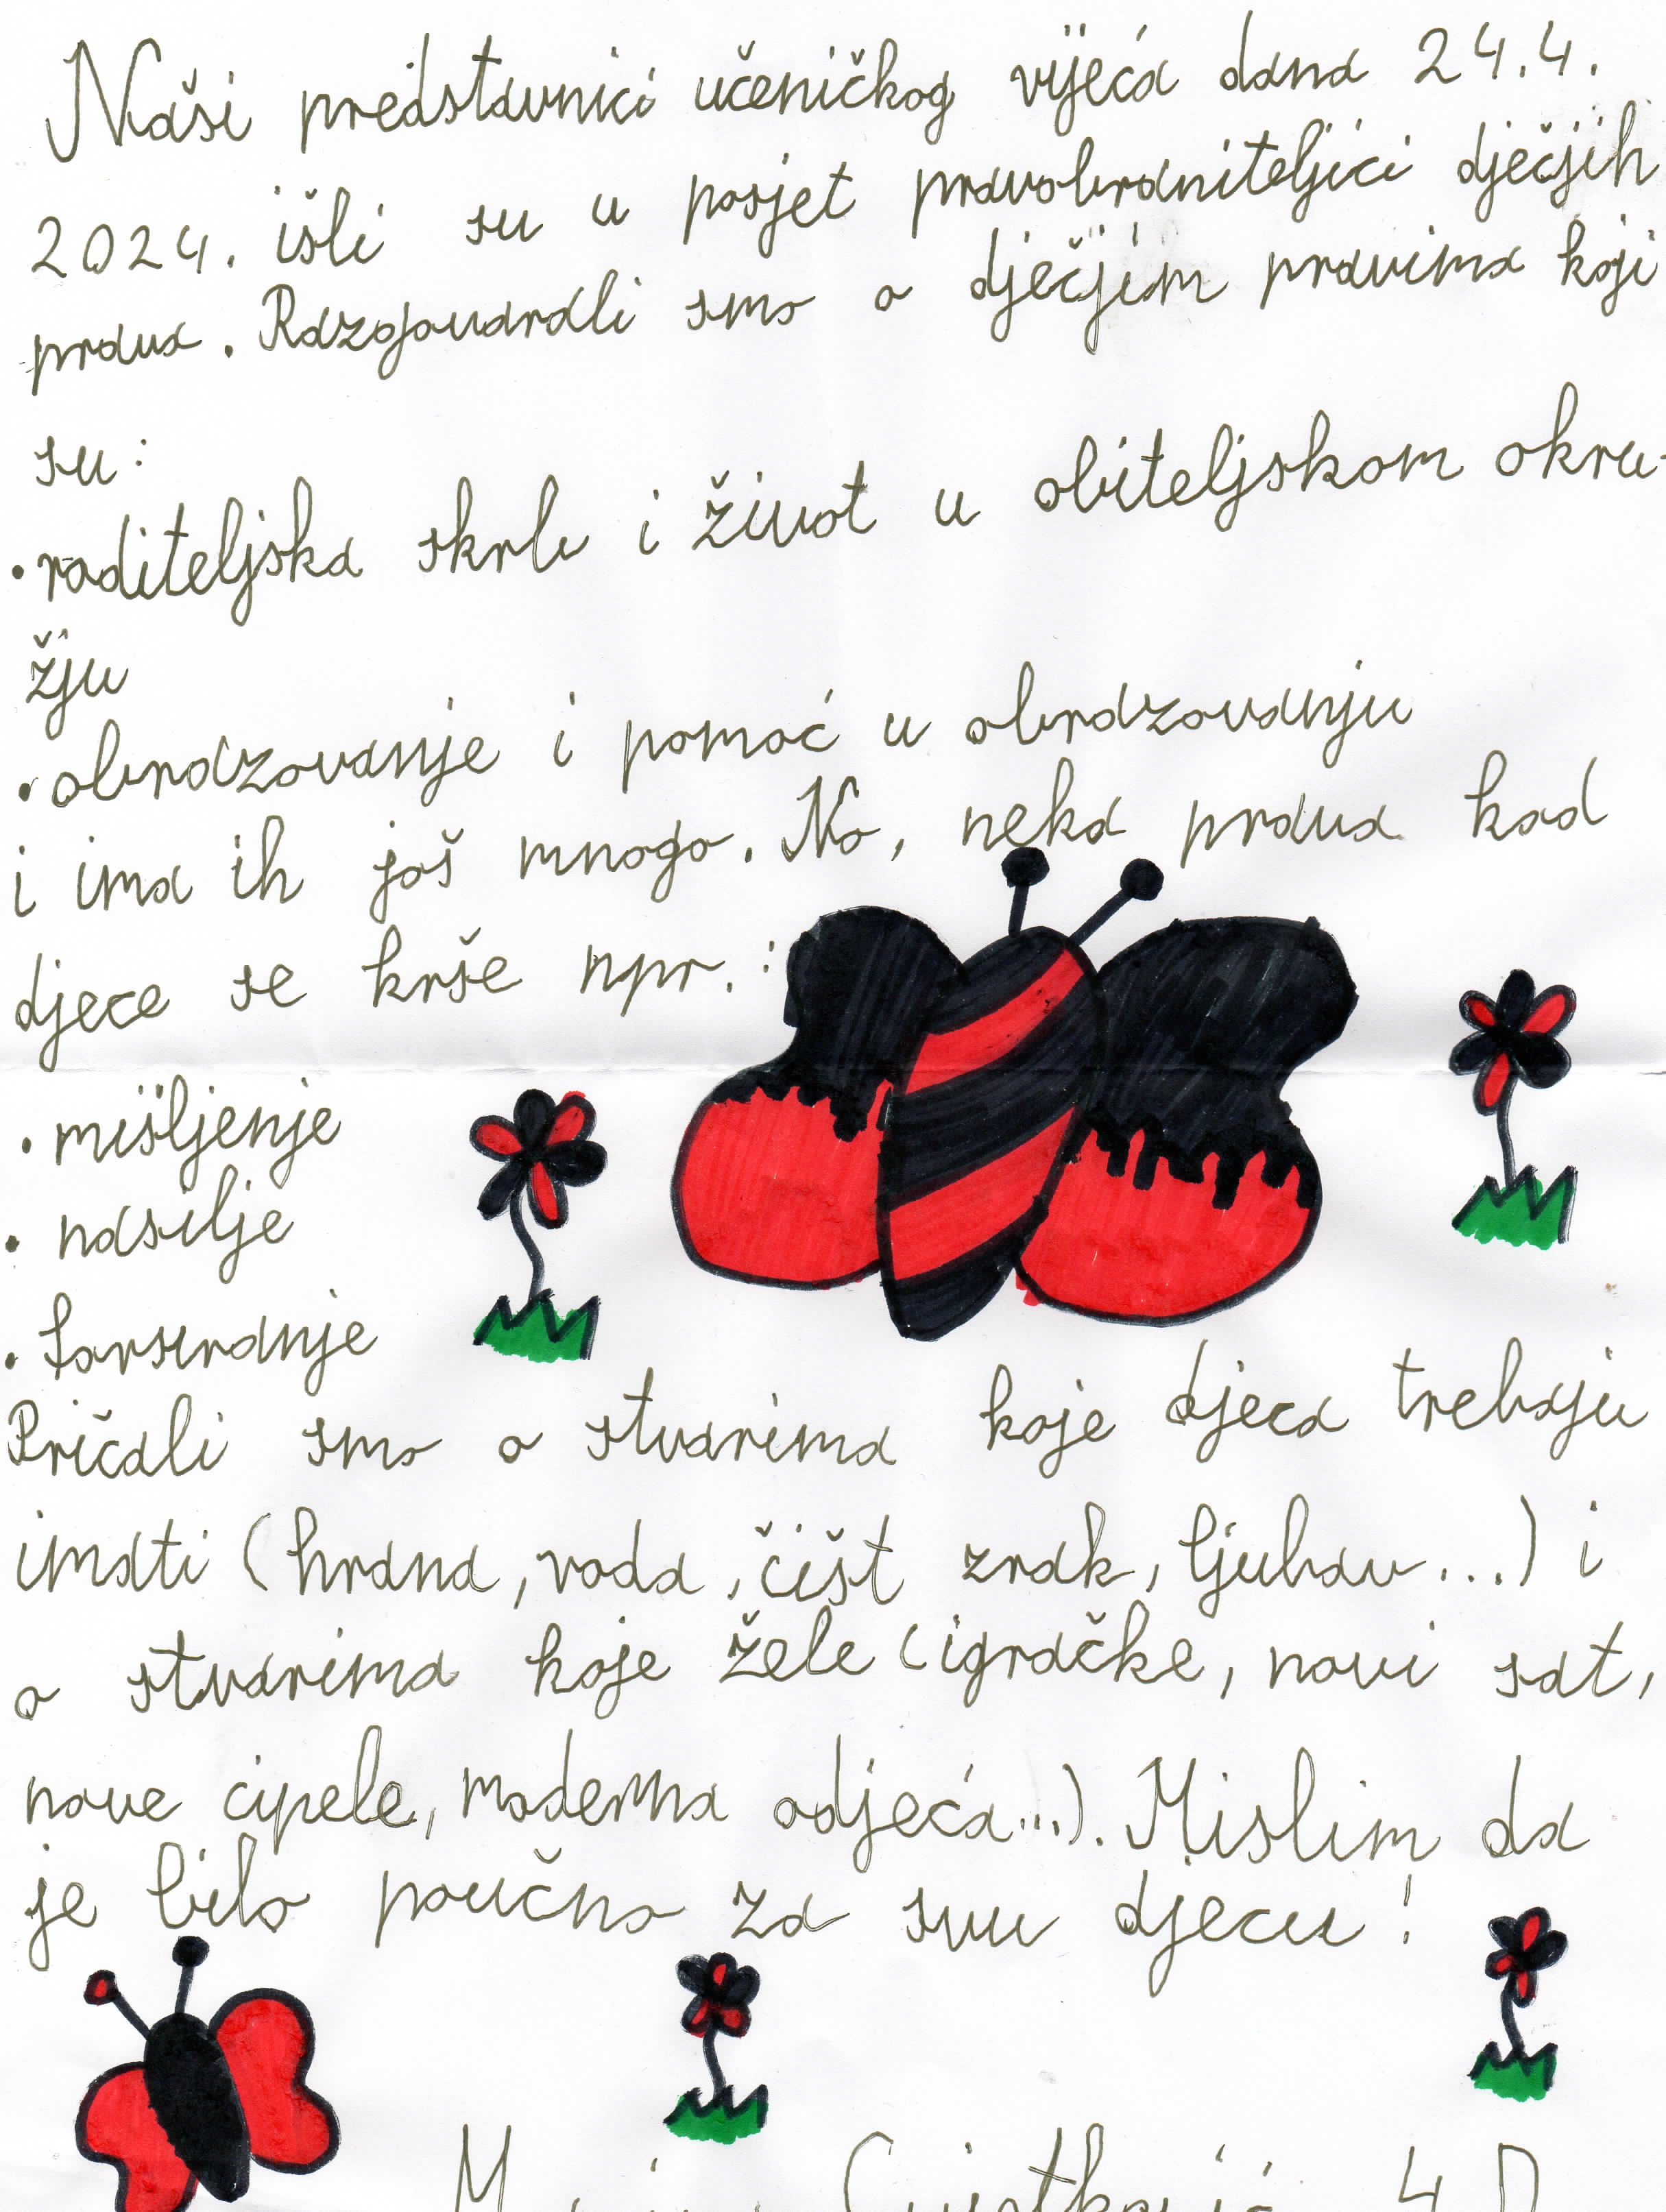 Naši predstavnici učeničkog vijeća dana 24.4.
2024. išli su u posjet pravobraniteljici dječjih
prava. Razgovarali smo o dječjim pravima koji
su:
•roditeljska skrb i život u obiteljskom okru-
žju
•obrazovanje i pomoć u obrazovanju
i ima ih još mnogo. No, neka prava kod
djece se krše npr.:
• mišljenje
• nasilje
• forsiranje
Pričali smo o stvarima koje djeca trebaju
imati (hrana, voda, čišt zrak, ljubav...) i
o stvarima koje žele (igračke, novi sat,
nove cipele, moderna odjeća...). Mislim da
je bilo poučno za svu djecu!
Cvjetković 4.D